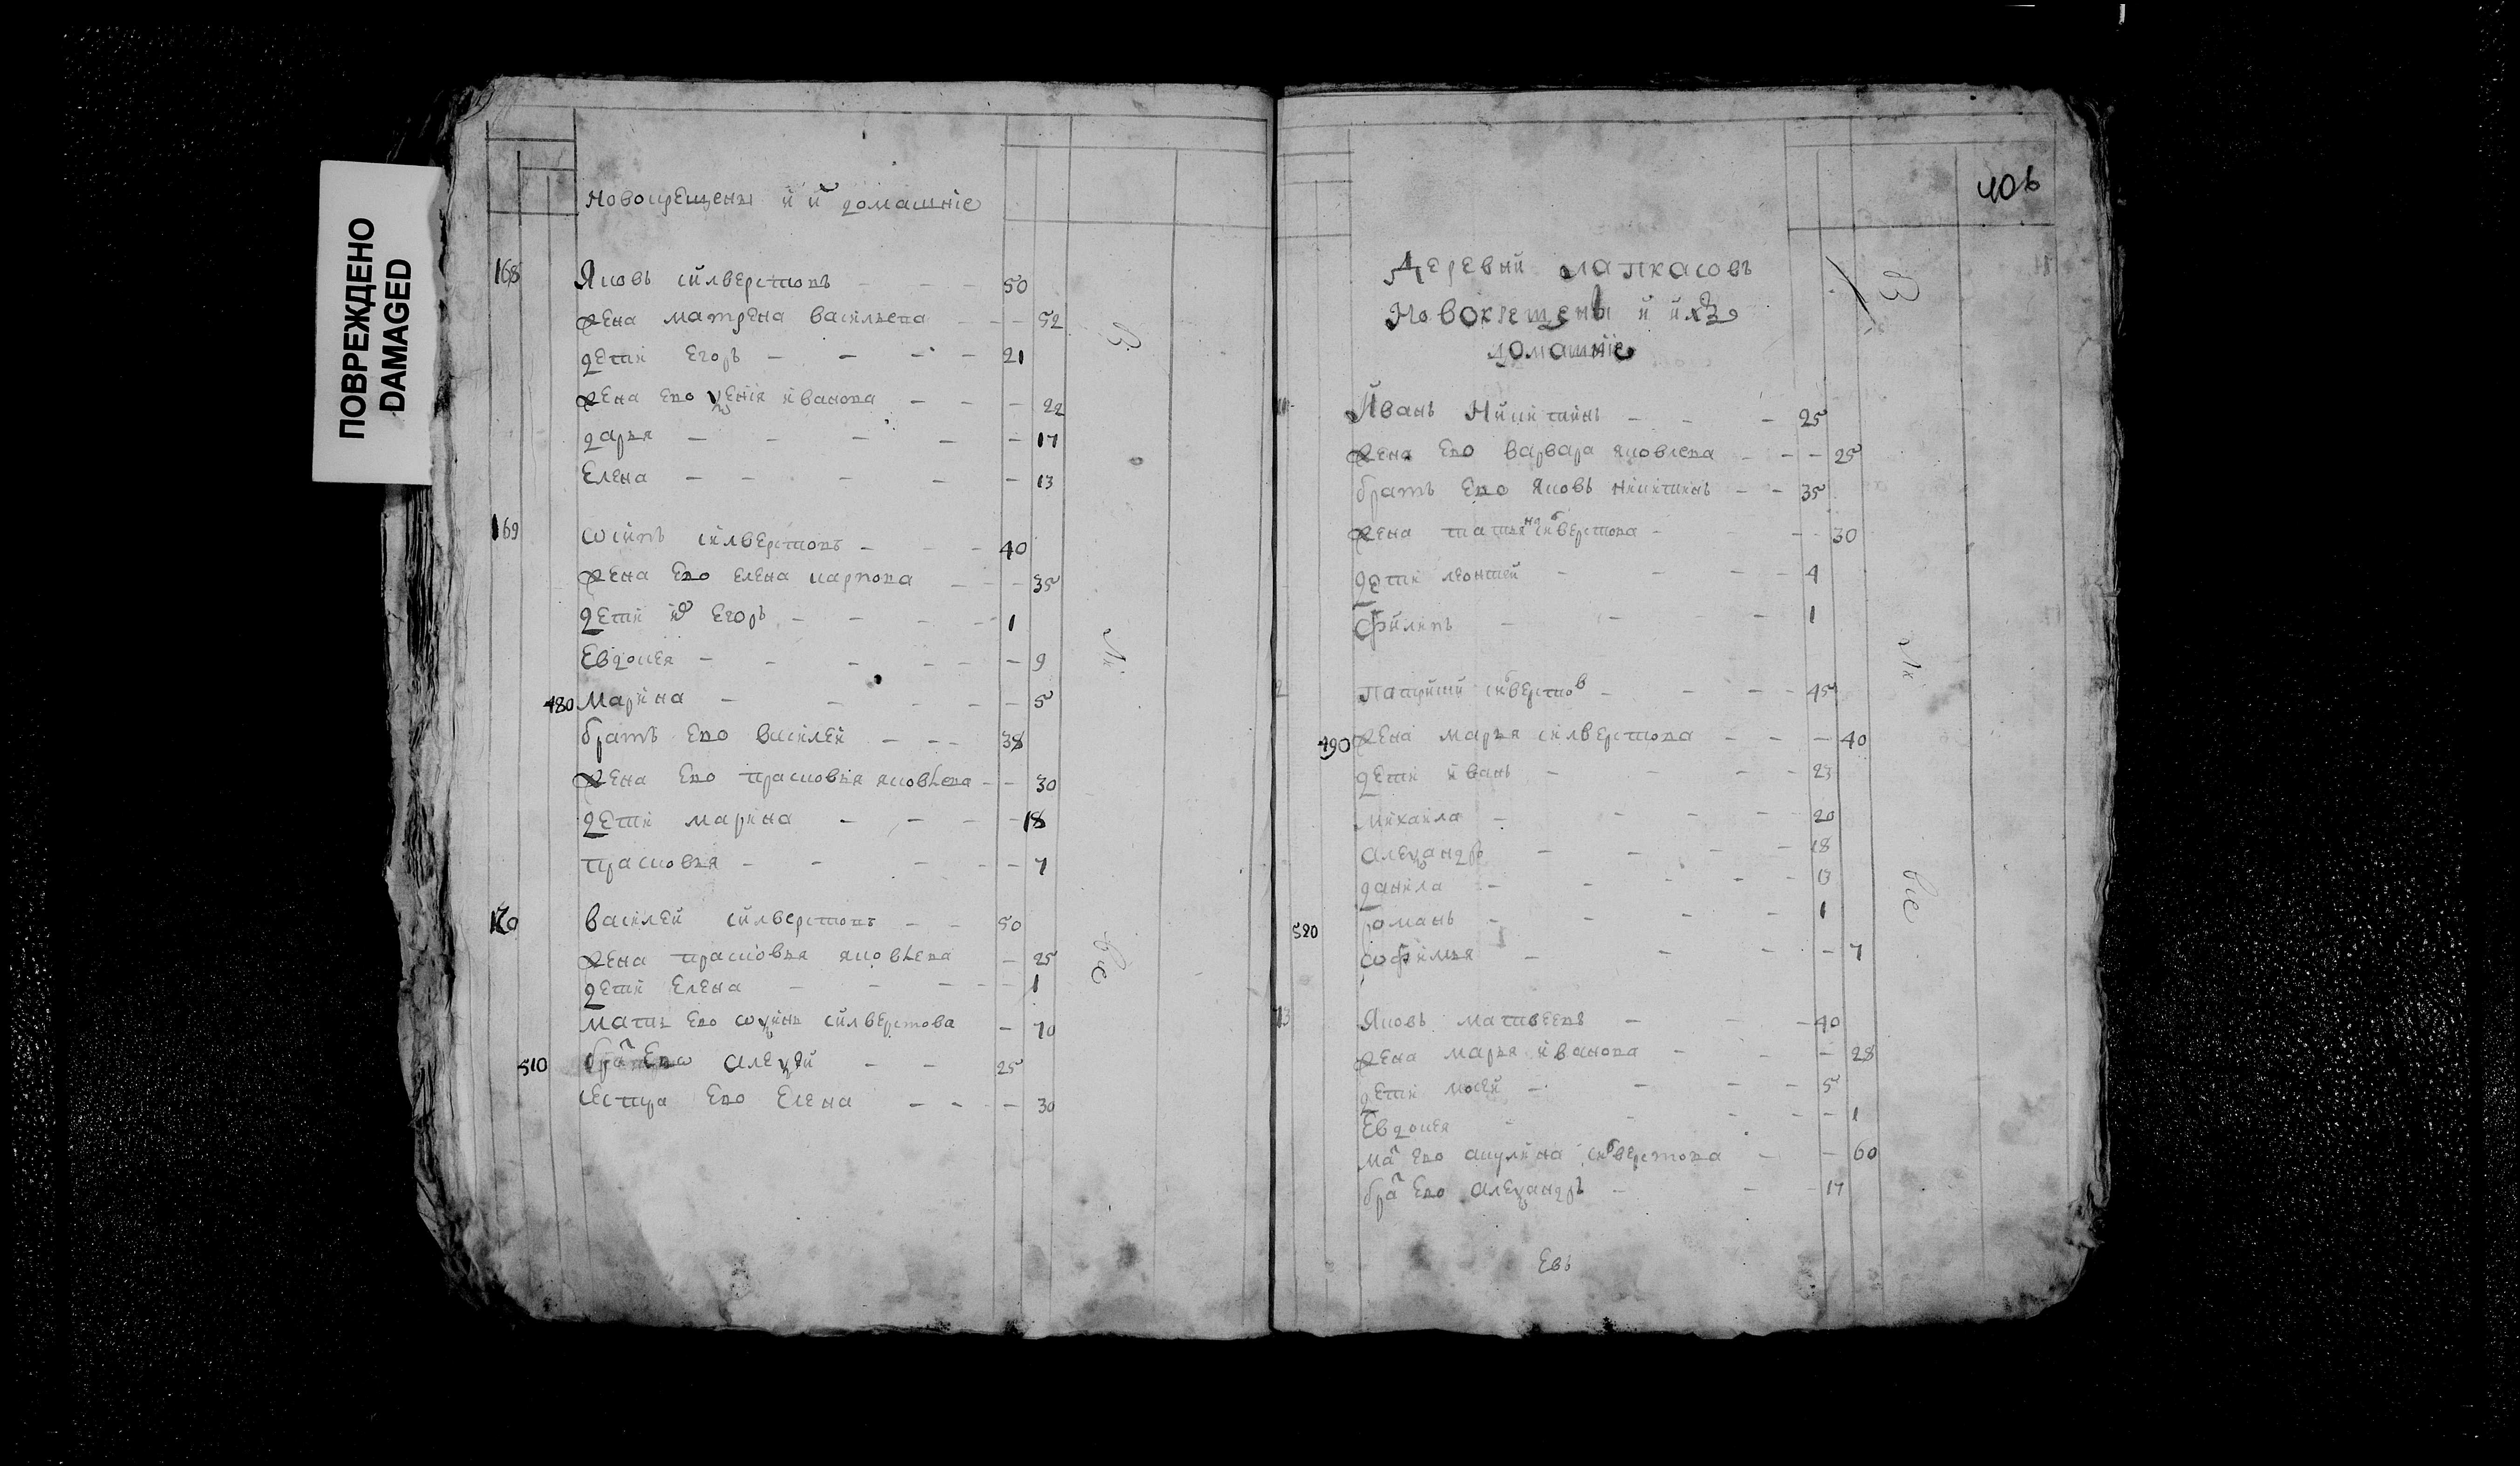 ПОВРЕЖДЕНО
DAMAGED
новокрещены и и домашніе
168 Яковъ силверстовъ 50
жена матрена васильева 52
дети егоръ 21
жена ево ѯенія иванова 22
дарья 17
Елена 13
169 осипъ силверстовъ 40
жена ево елена карпова 35
дети их егоръ 1
Евдокея 9
480 Марина 5
братъ ево василей 38
жена ево прасковья яковлева 30
дети марина 18
прасковья 7
170 василей силверстовъ 50
жена прасковья яковлева 25
дети елена 1
мать ево силверстова 70
510 бра ево алеѯей 25
сестра ево Елена 30
В
Ли
все
406
Деревни лапкасовъ
Новокрещены и ихъ
домашніе
Иванъ Никитинъ 25
жена ево варвара яковлева 25
братъ ево яковъ никитинъ 35
жена татьяна силверстова 30
дети леонтей 4
филипъ 1
2 силверстов 45
490 жена марья силверстова 40
дети иванъ 23
михаила 20
алеѯандръ 18
данила 13
романъ 1
520 софимья 7
73 Яковъ матвеевъ 40
жена марья иванова 28
дети мосей 5
Евдокея 1
ма ево акулина силверстова 60
бра ево алеѯандръ 17
В
Ли
все
Евъ